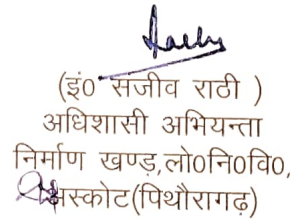 (इं0 संजीव राठी )
अधिशासी अभियन्ता
निर्माण खण्ड,लो0नि0वि0,
अस्कोट(पिथौरागढ़)